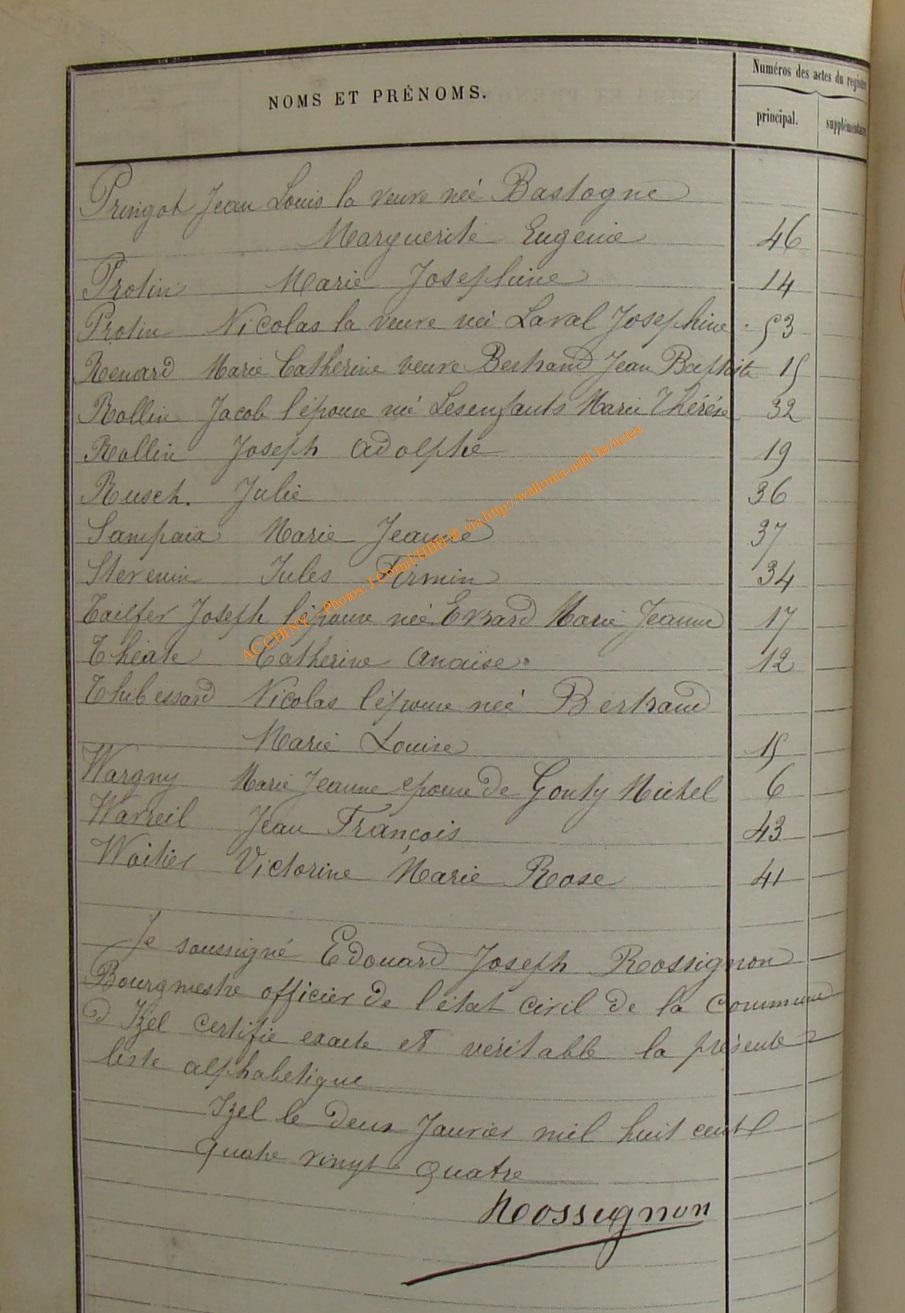 NOMS ET PRÉNOMS.
Numéros des actes du registre
principal.
supplémentaire
Pringot Jean Louis la veuve neé Bastogne
Marguerite Eugenie 46
Protin Marie Josephine 14
Protin Nicolas la veuve neé Laval Josephine 53
Renard Marie Catherine veuve Bertrand Jean Baptiste 15
Rollin Jacob l'épouse né Lesenfants Marie Thérése 32
Rollin Joseph Adolphe 19
Rusch. Julie 36
Sampaix Marie Jeanne 37
Stevenin Jules Firmin 34
Tailfer Joseph l'épouse neé Evrard Marie Jeanne 17
Théate Catherine Anaïse 12
Thibessard Nicolas l'épouse neé Bertrand
Marie Louise 15
Wargny Marie Jeanne epouse de Gouty Michel 6
Warreil Jean François 43
Woitier Victorine Marie Rose 41
Je soussigné Edouard Joseph Rossignon
Bourgmestre officier de l'état civil de la Commune
d Izel certifie exacte et véritable la présente
liste alphabetique
Izel le deux Janvier mil huit cent
quatre vingt quatre
Rossignon